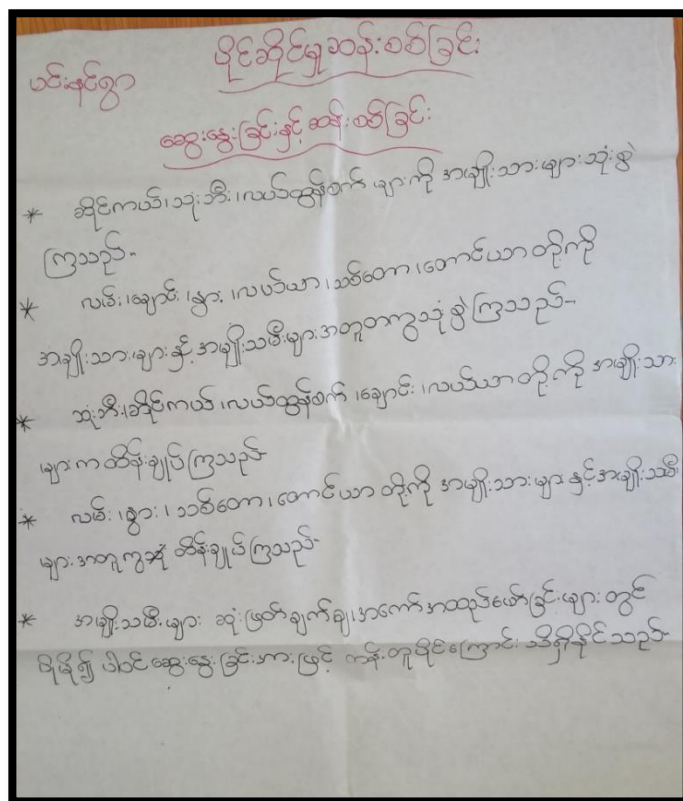 ပိုင်ဆိုင်မှုဆန်းစစ်ခြင်း
မင်းနင်ရွာ
ဆွေးနွေးခြင်းနှင့်ဆန်းစစ်ခြင်း
* ဆိုင်ကယ်၊သုံးဘီး၊လယ်ထွန်စက် များကို အမျိုးသားများသုံးစွဲ
ကြသည်။
* လမ်း၊ချောင်း၊နွား၊လယ်ယာ၊သစ်တော၊တောင်ယာ တို့ကို
အမျိုးသားများနှင့်အမျိုးသမီးများအတူတကွသုံးစွဲကြသည်။
* သုံးဘီး၊ဆိုင်ကယ်၊လယ်ထွန်စက်၊ချောင်း၊လယ်ယာတို့ကို အမျိုးသား
များကထိန်းချုပ်ကြသည်
* လမ်း၊နွား၊သစ်တော၊တောင်ယာတို့ကို အမျိုးသားများနှင့်အမျိုးသမီး
များအတူကွ ထိန်းချုပ်ကြသည်
* အမျိုးသမီးများ ဆုံးဖြတ်ချက်ချ၊အကောင်အထည်ဖော်ခြင်းများတွင်
ပိုမို၍ ပါဝင်ဆွေးနွေးခြင်းအားဖြင့် တန်းတူပိုင်ကြောင်း သိရှိနိုင်သည်